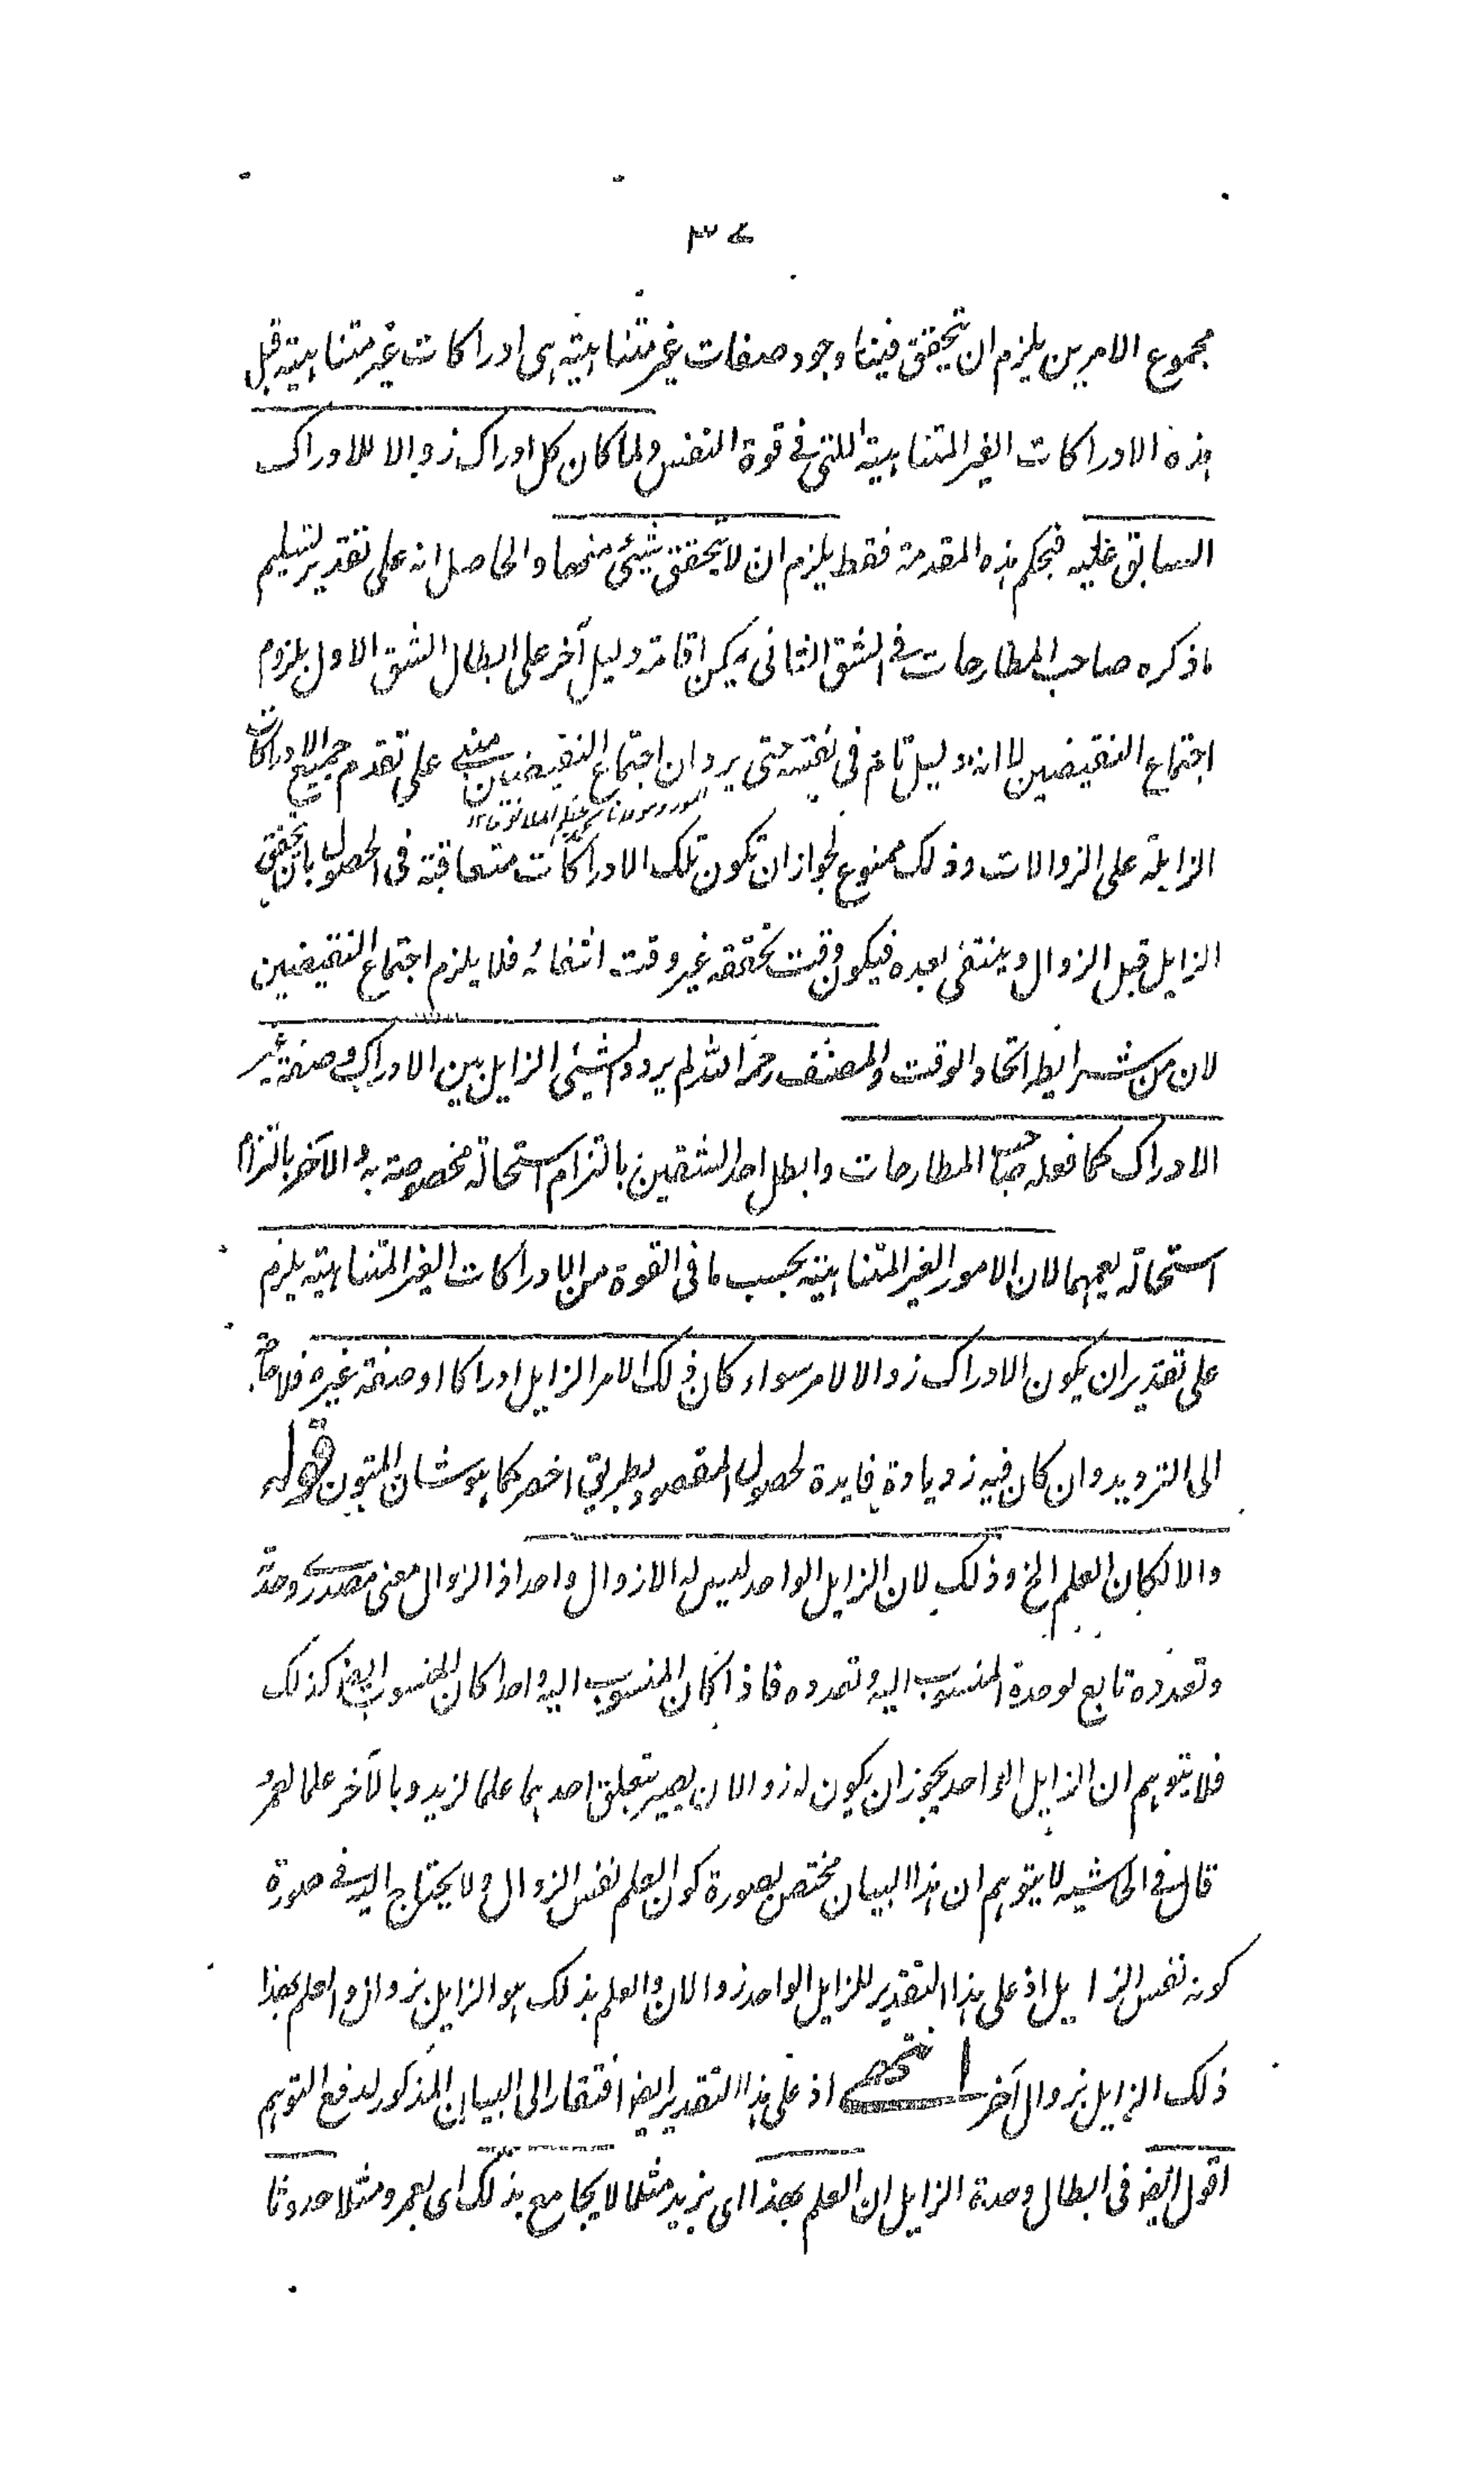 ٣٤
مجموع الامرين يلزم ان يتحقق فينا وجود صفات غير متناهية هى ادراكات غير متناهية قبل
هذه الادراكات الغير المتناهية اللتى فى قوة النفس ولما كان كل ادراك زوالا للادراك
السابق عليه فبحكم هذه المقدمة فقط يلزم ان لا يتحقق شيئ منها والحاصل انه على تقدير تسليم
ما ذكره صاحب المطارحات فى الشق الثانى يمكن اقامة دليل آخر على ابطال الشق الاول بلزوم
اجتماع النقيضين لا انه دليل تام فى نفسه حتى يرد ان اجتماع النقيضين مبنى على تقدم جميع الادراكات
الزايلة على الزوالات وذلك ممنوع لجواز ان تكون تلك الادراكات متعاقبة فى الحصول بان يتحقق
الزايل قبل الزوال وينتفى بعده فيكون وقت تحققه غير وقت انتفائه فلا يلزم اجتماع النقيضين
لان من شرايطه اتحاد الوقت والمصنف رحمه الله لم يردد الشيئ الزايل بين الادراك وصفة غير
الادراك كما فعله صاحب المطارحات وابطل احد الشقين بالتزام استحالة مخصوصة به والآخر بالتزام
استحالة يعمهما لان الامور الغير المتناهية بحسب ما فى القوة من الادراكات الغير المتناهية يلزم
على تقدير ان يكون الادراك زوالا لامر سواء كان ذلك الامر الزايل ادراكا او صفة غيره فلا حاجة
الى الترديد وان كان فيه زيادة فايدة لحصول المقصود بطريق اخصر كما هو شان المتون قوله
والا لكان العلم الخ وذلك لان الزايل الواحد ليس له الا زوال واحد اذ الزوال معنى مصدرى وحدته
وتعدده تابع لوحدة المنسوب اليه وتعدده فاذا كان المنسوب اليه واحدا كان المنسوب ايضا كذلك
فلا يتوهم ان الزايل الواحد يجوز ان يكون له زوالان يصير بتعلق احدهما علما لزيد وبالآخر علما لعمرو
قال فى الحاشيه لا يتوهم ان هذا البيان مختص بصورة كون العلم نفس الزوال ولا يحتاج اليه فى صورة
كونه نفس الزايل اذ على هذا التقدير للزايل الواحد زوالان والعلم بذلك هو الزايل بزوال والعلم بهذا
ذلك الزايل بزوال آخر انتهى اذ على هذا التقدير ايضا افتقار الى البيان المذكور لدفع التوهم
اقول ايضا فى ابطال وحدة الزايل ان العلم بهذا اى بزيد مثلا لا يجامع بذلك اى بعمرو مثلا حدوثا